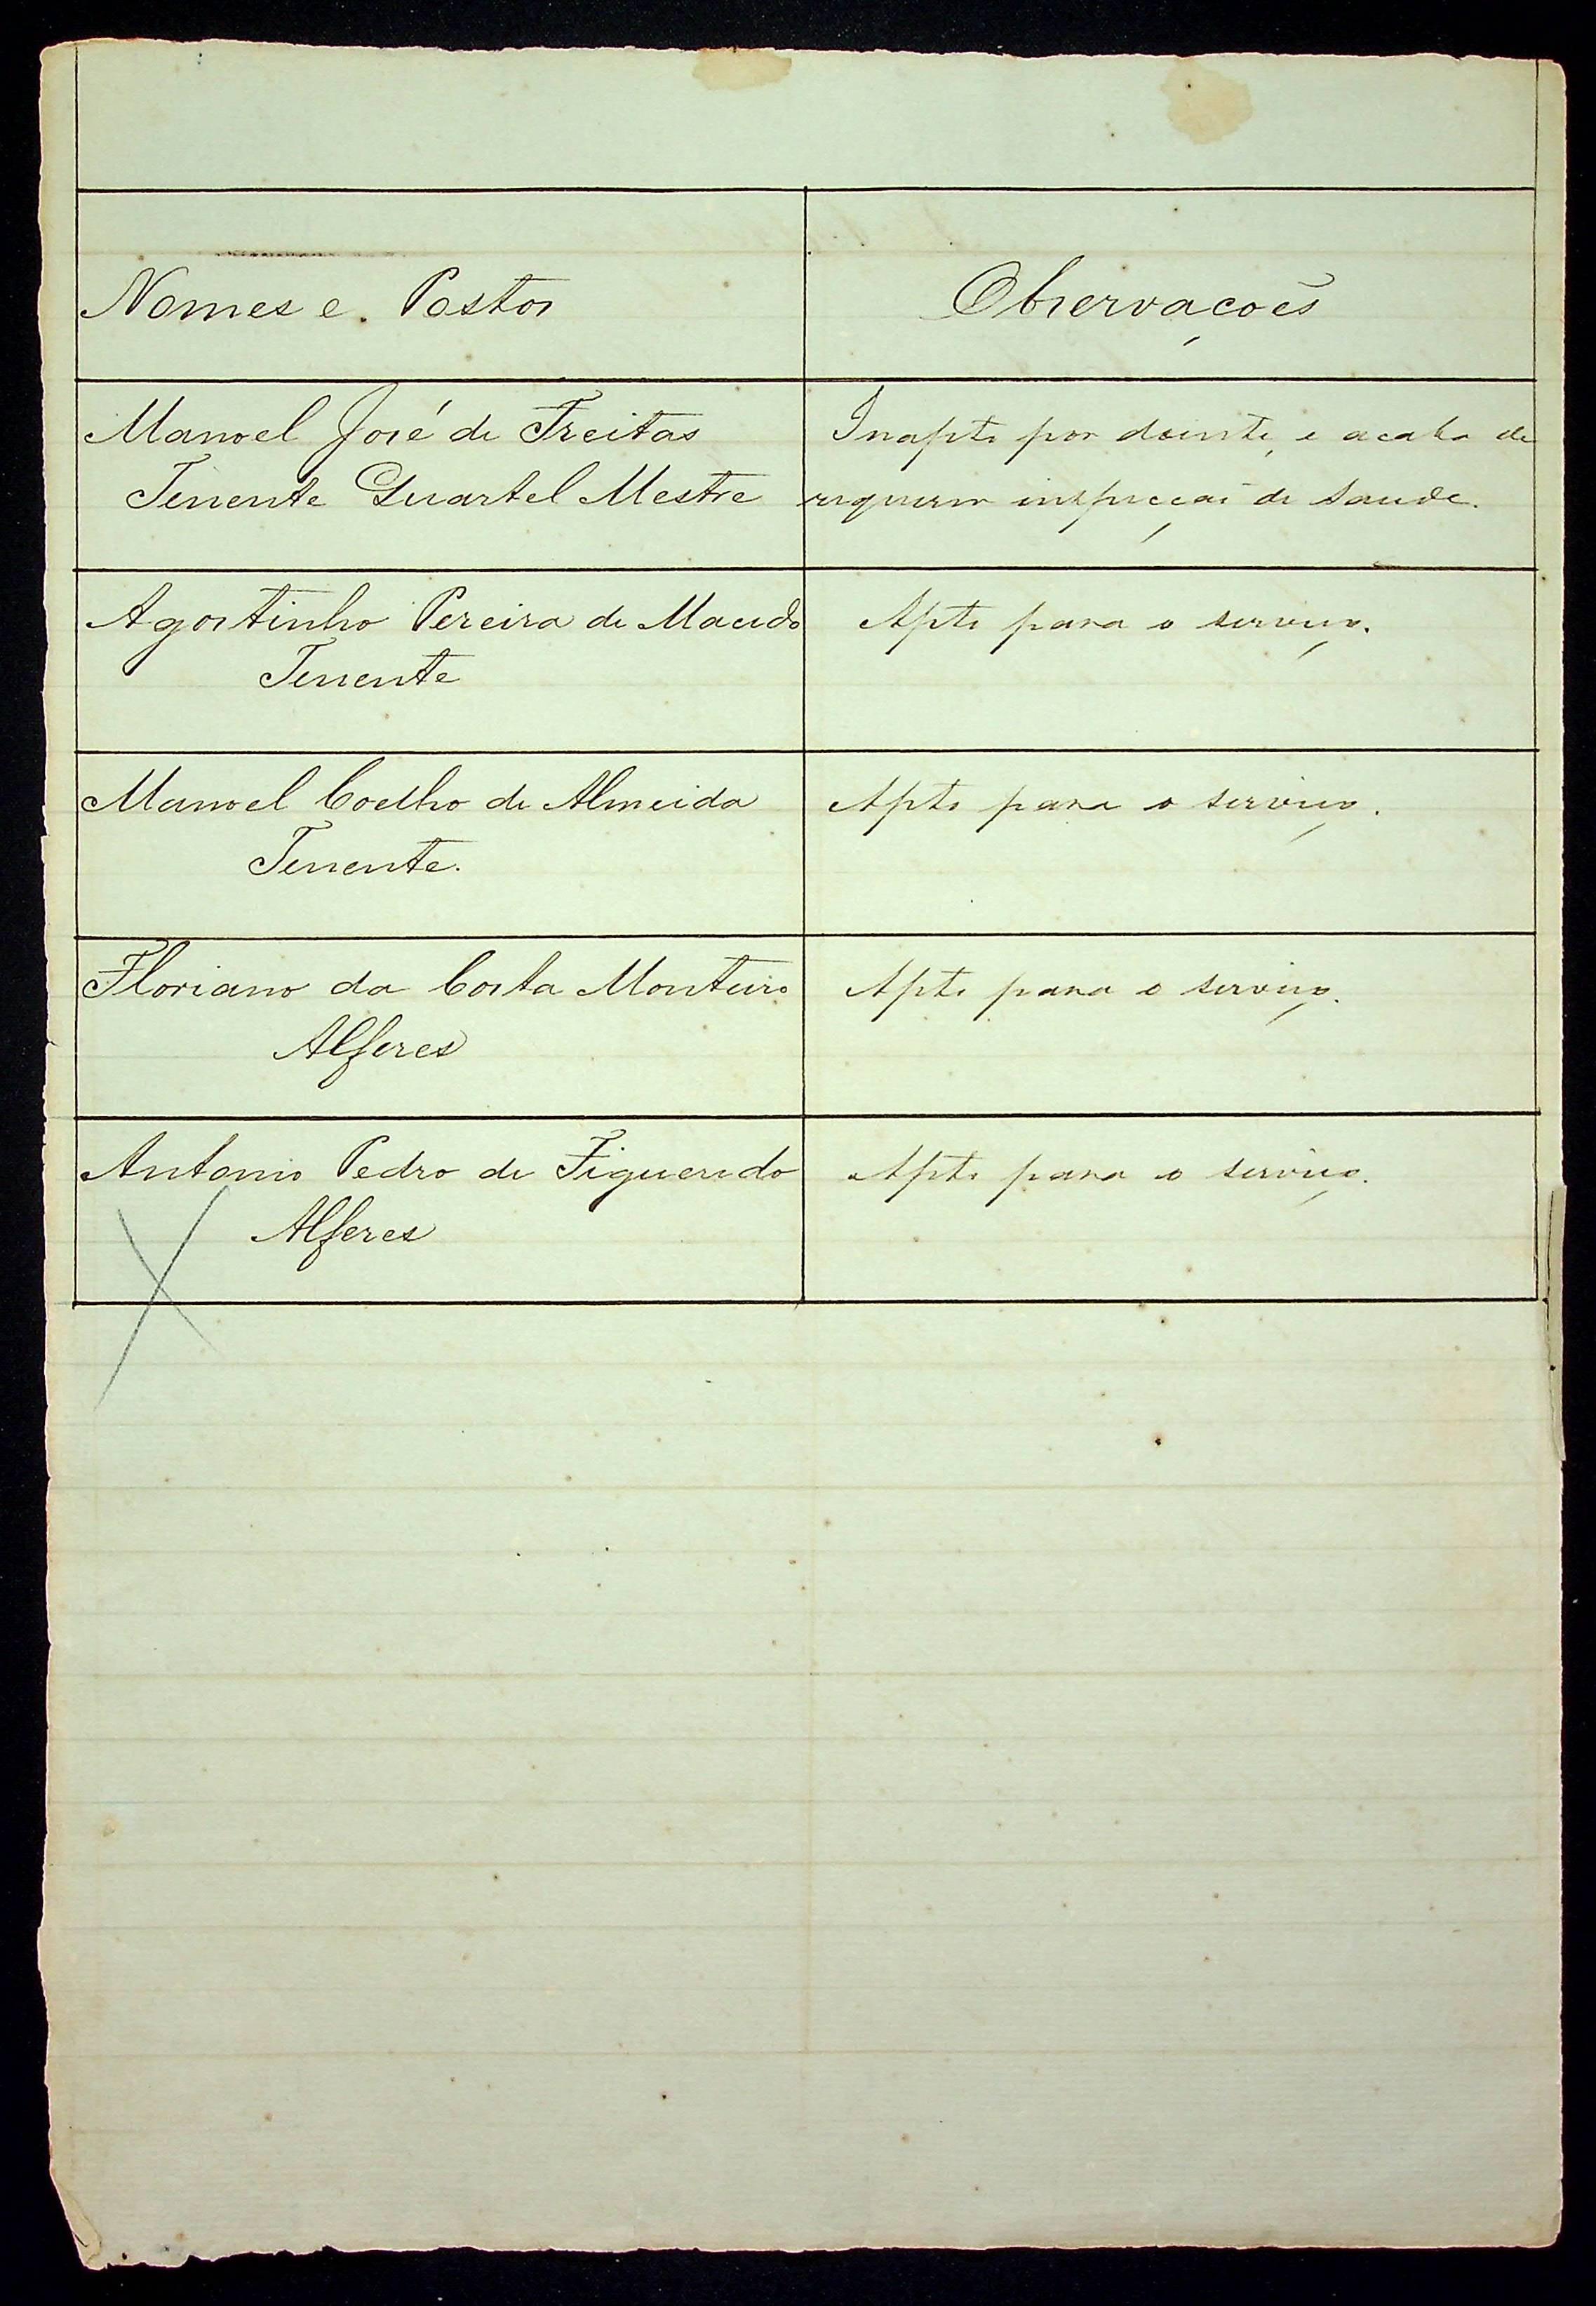 Nomes e Postos
Observações
Manoel José de Freitas
Tenente Quartel Mestre
Inapto por doente, e acaba de
requerer inspecção de saude.
Agostinho Pereira de Macedo
Tenente
Apto para o serviço.
Manoel Coelho de Almeida
Tenente.
Apto para o serviço.
Floriano da Costa Monteiro
Alferes
Apto para o serviço.
Antonio Pedro de Figueredo
Alferes
Apto para o serviço.